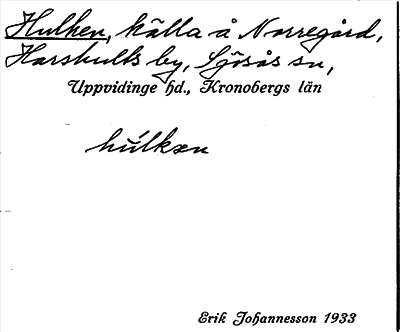 Hulken, källa å Norregård,
Harshults by, Sjösås sn,
Uppvidinge hd., Kronobergs län
húlkən
Erik Johannesson 1933